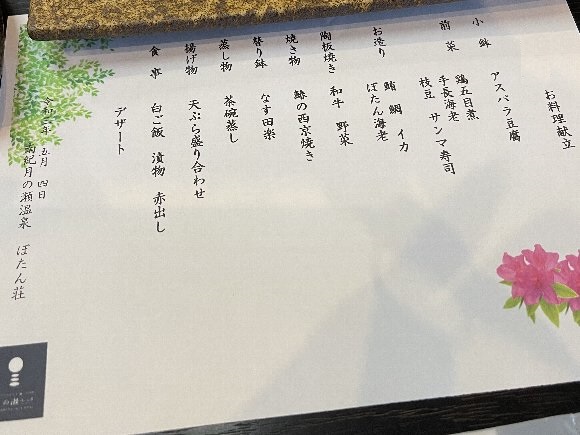 お料理献立
小鉢　アスパラ豆腐
前菜　鶏五目煮
手長海老
枝豆　サンマ寿司
お造り　鮪　鯛　イカ
ぼたん海老
陶板焼き　和牛　野菜
焼き物　鰆の西京焼き
替り鉢　なす田楽
蒸し物　茶碗蒸し
揚げ物　天ぷら盛り合わせ
食事　白ご飯　漬物　赤出し
デザート
五月　四日
月の瀬温泉　ぼたん荘